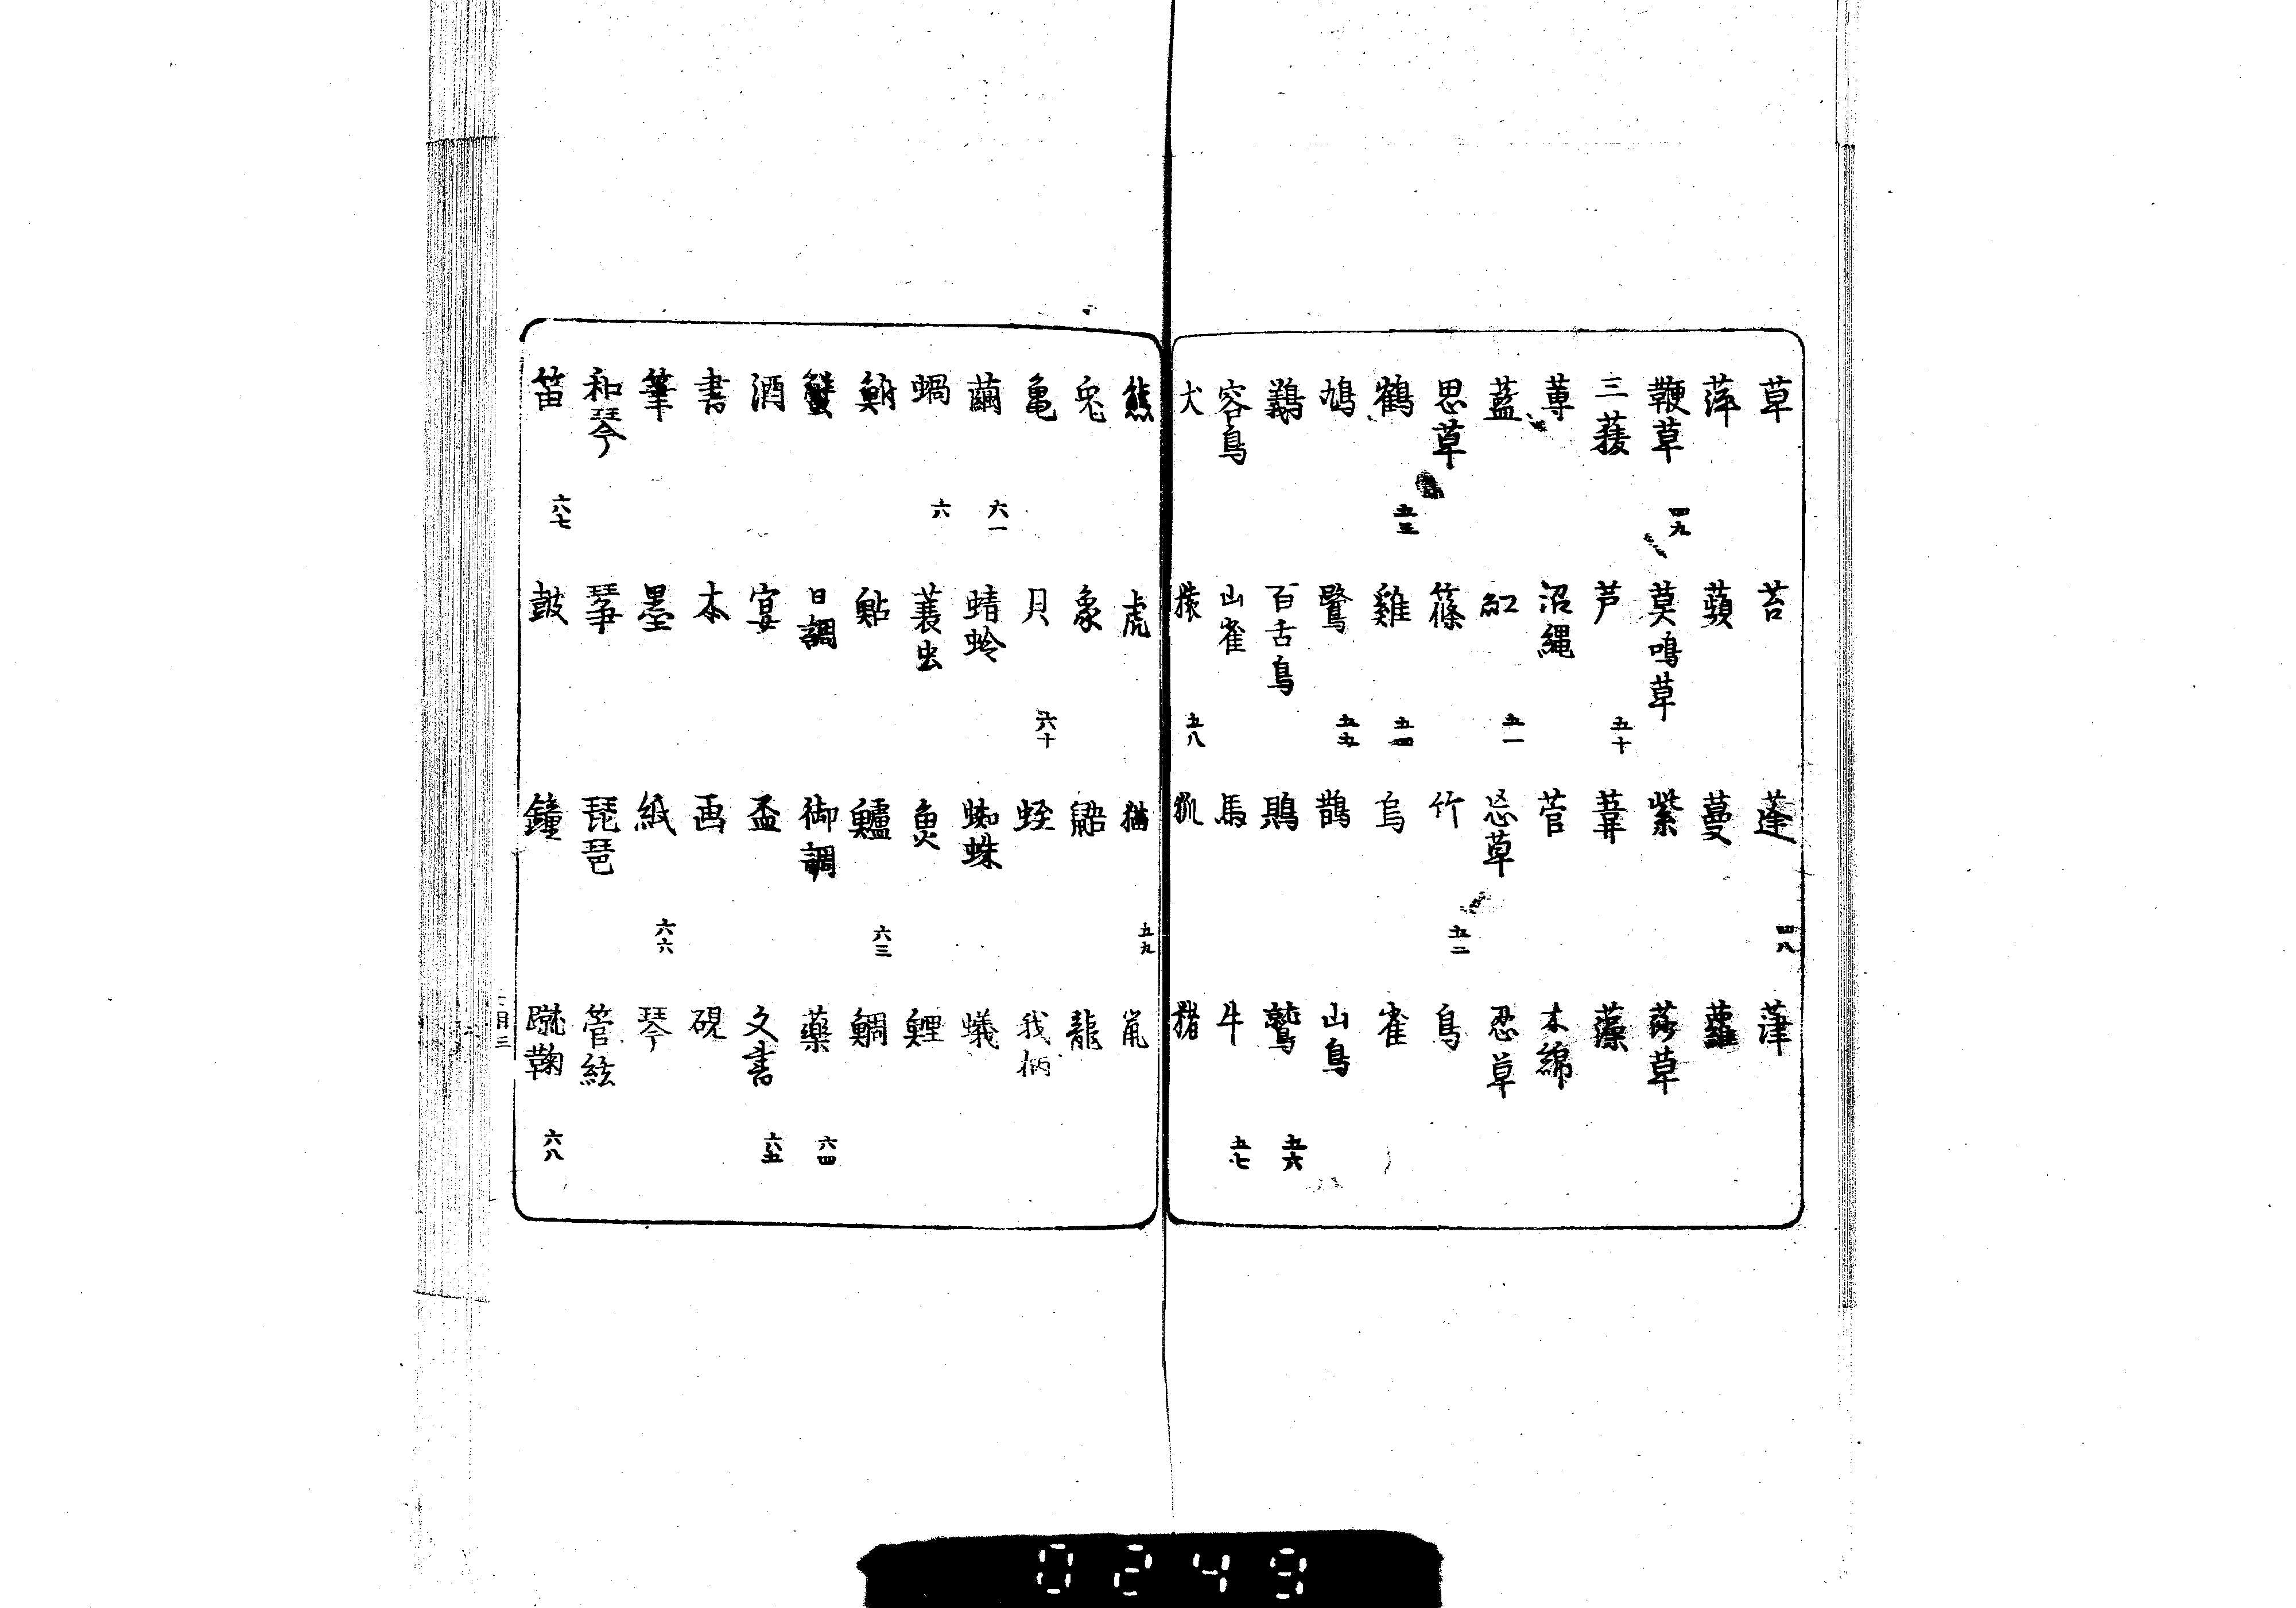 草 苔 蓬 四八 葎
萍 蘋 蔓 蘿
鞭草 四九 莫鳴草 紫 莎草
三葰 芦 五十 葦 藻
蓴 沼縄 菅 木綿
藍 紅 五一 忘草 忍草
思草 篠 竹 五二 鳥
鶴 五三 雞 五四 烏 雀
鳩 鷺 五五 鵲 山鳥
鷭 百舌鳥 鵙 鷲 五六
容鳥 山雀 馬 牛 五七
犬 猿 五八 狐 猪
熊 虎 猫 五九 鼠
兎 象 龍
亀 貝 六十 蛭 我柄
繭 六一 蜻蛉 蜘蛛 蟻
蝸 六 蓑虫 魚 鯉
鮒 鮎 鱸 六三 鯛
蟹 日調 御調 薬 六四
酒 宴 盃 文書 六五
書 本 画 硯
筆 墨 紙 六六 琴
和琴 箏 琵琶 管絃
笛 六七 鼓 鐘 蹴鞠 六八
目三
0249